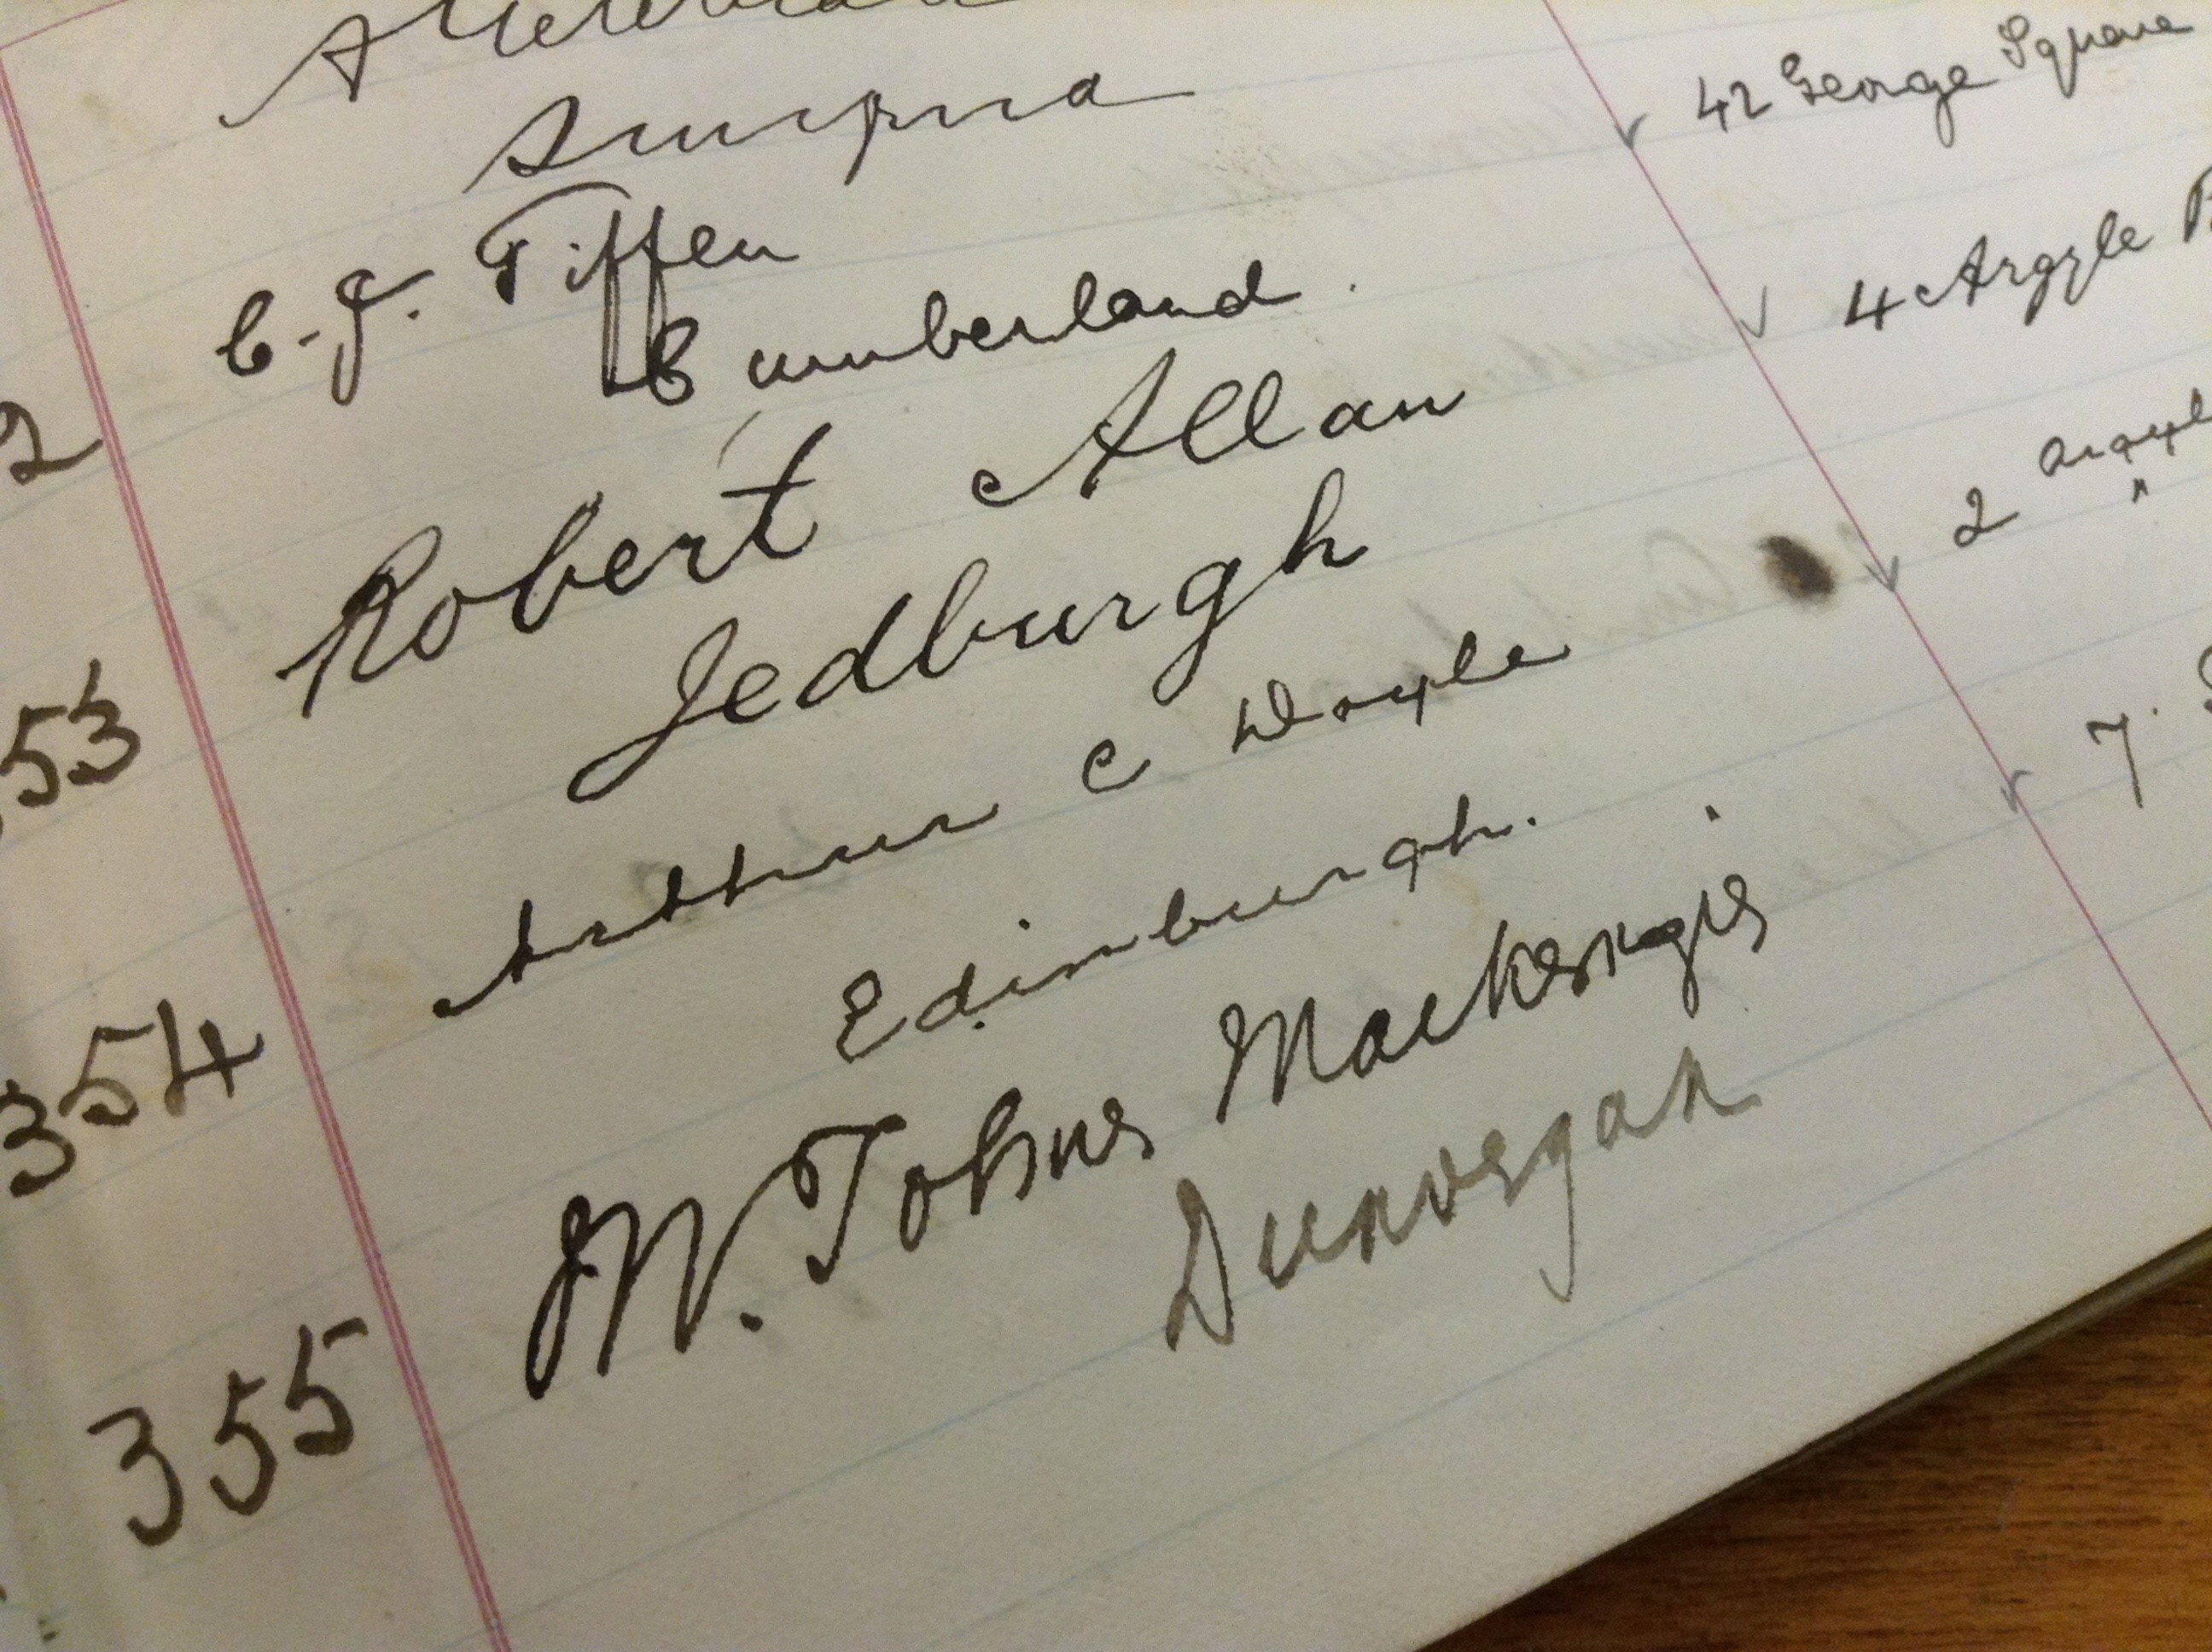 Smyrna
42 George Square
C. J. Tiffen
Cumberland.
4 Argyle
2
Robert Allan
Jedburgh
2 Argyle
"
53
Arthur C Doyle
Edinburgh.
7.
354
W. Johns Mackenzie
Dunvegan
355